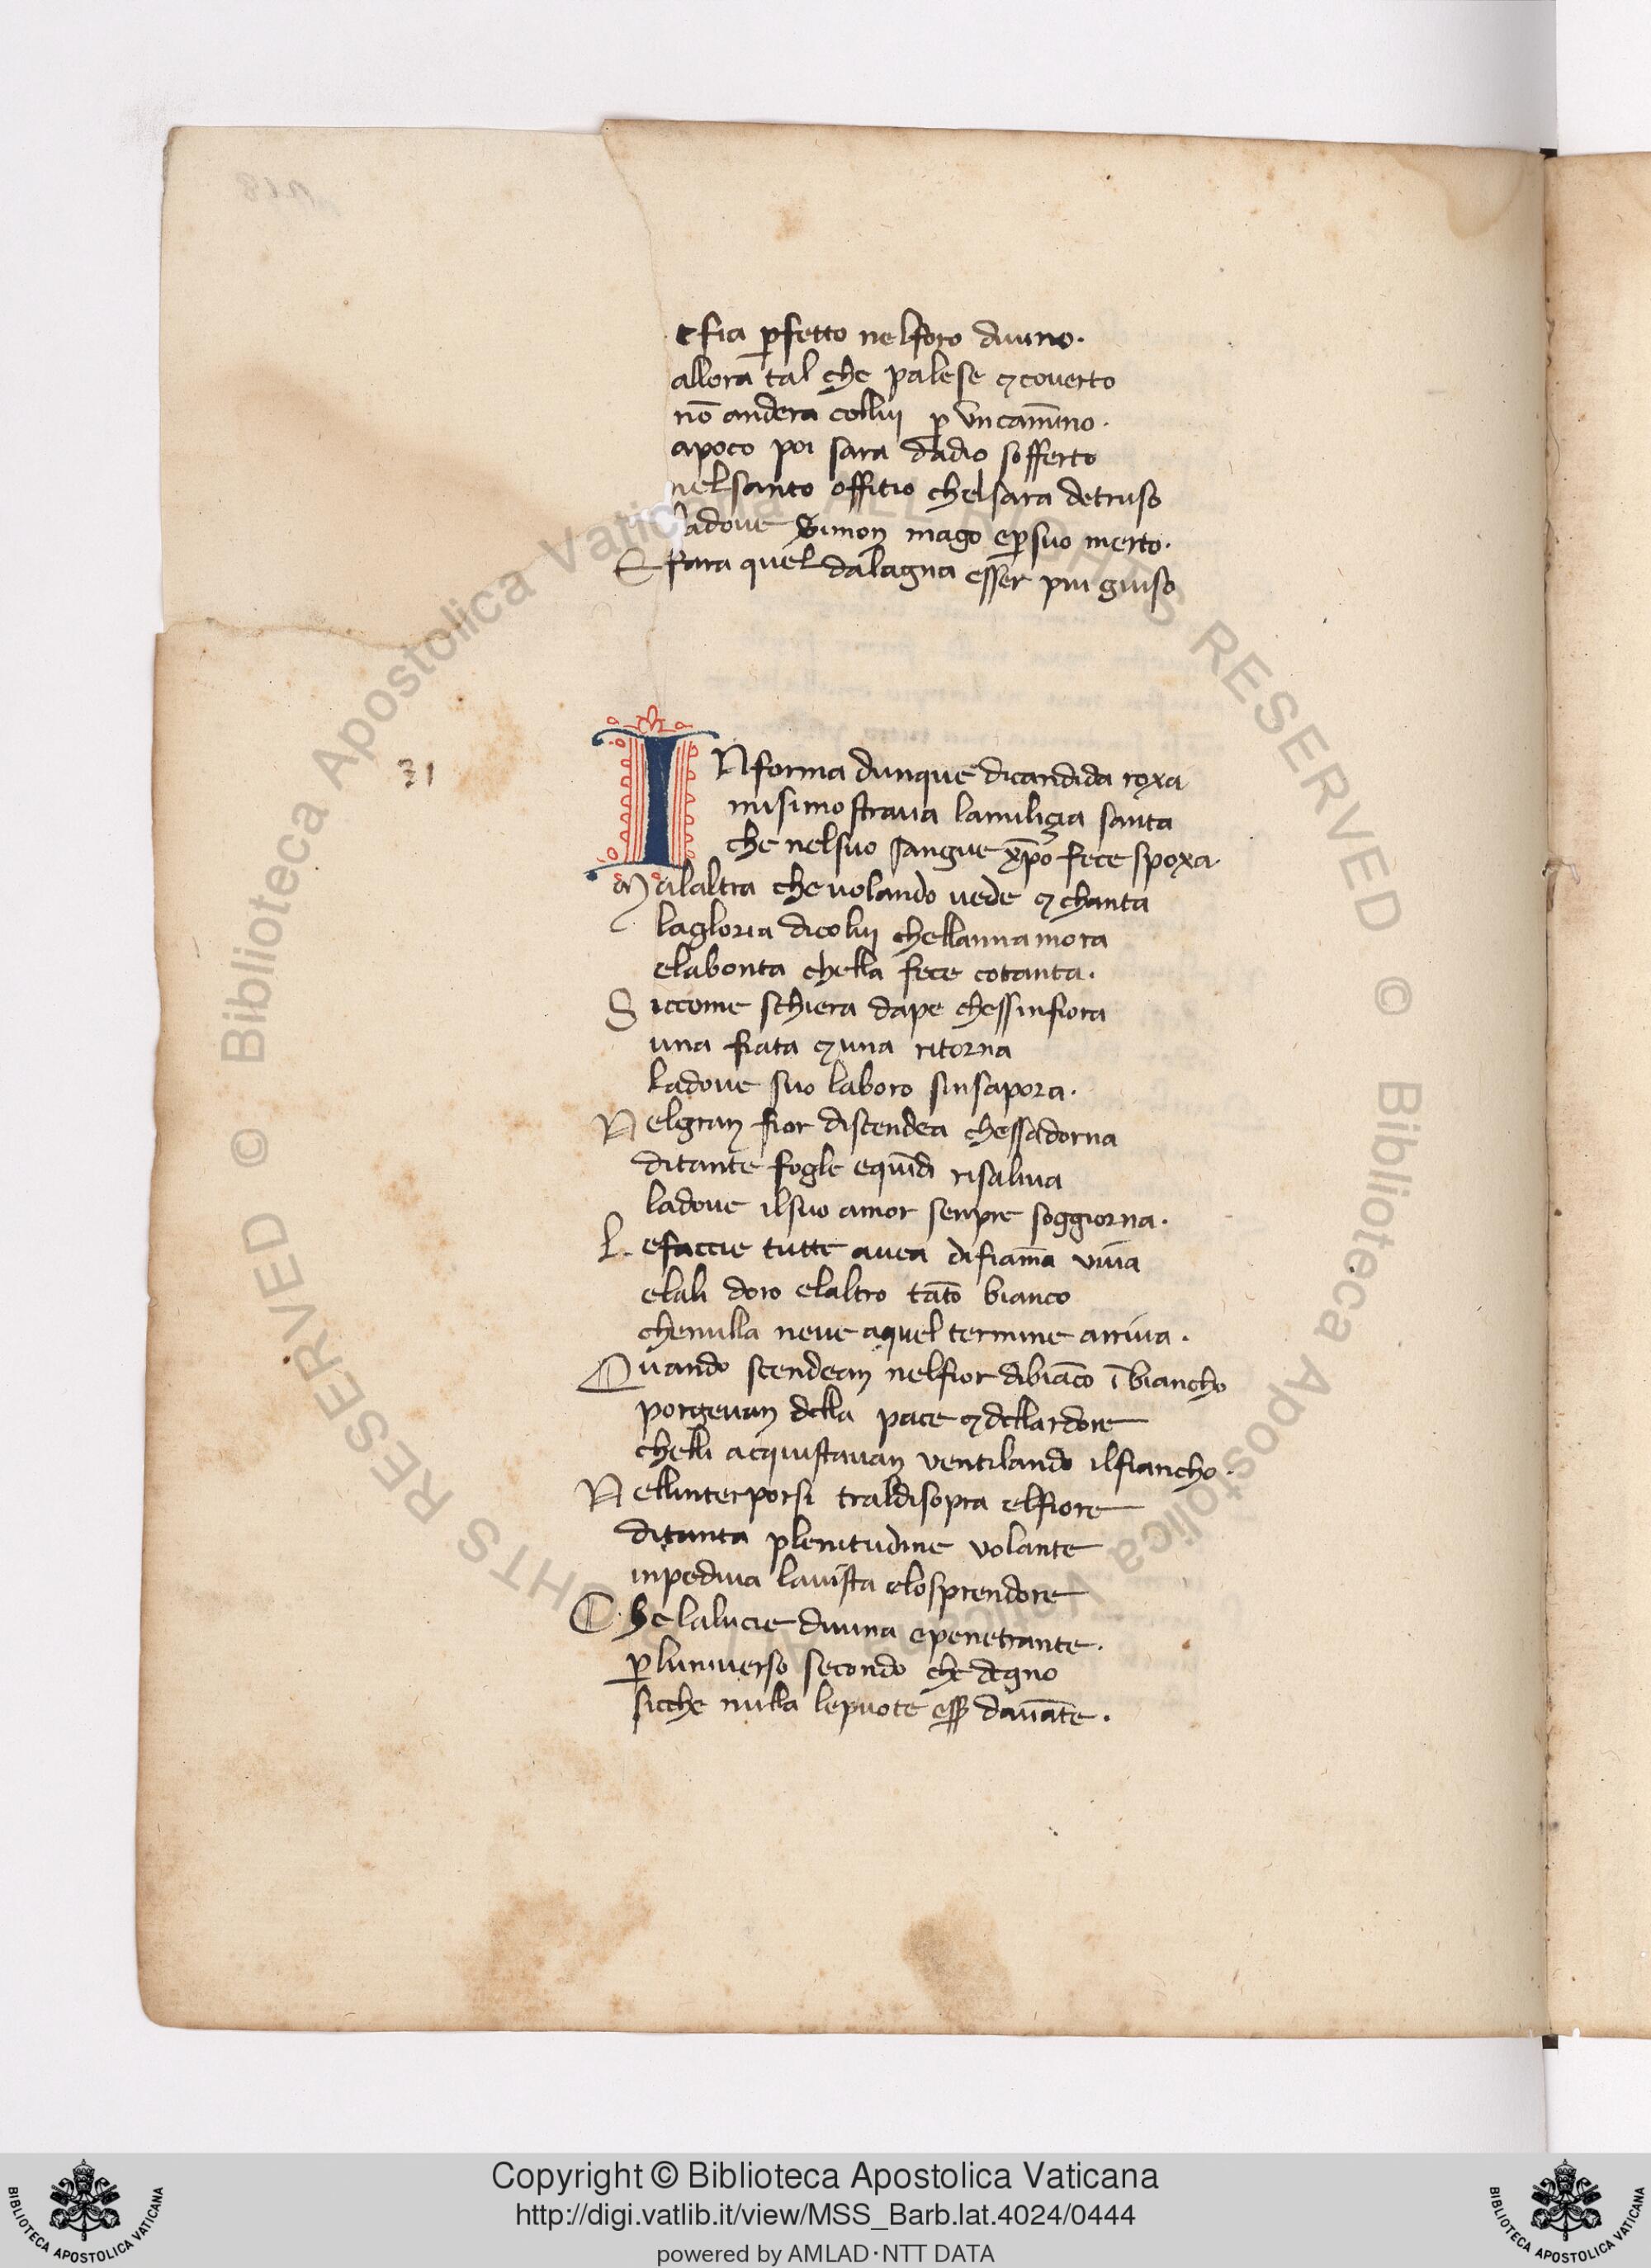 efia p̲fetto nelforo diuino.
allora tal che palese ⁊ couerto
nō andera collui p̲ vn camīno.
apoco poi sara dadio sofferto
nelsanto offitio chelsara detruso
ladoue Simon mago ep̲suo merto.
E fara quel dalagna esser piu giuso
31
INforma dunque dicandida roxa
misimostraua lamiliçia santa
che nelsuo sangue xp̄o fece spoxa.
Malaltra che uolando uede ⁊ chanta
lagloria dicolui chellannamora
elabonta chella fece cotanta.
Siccome schiera dape chessinfiora
una fiata ⁊ una ritorna
ladoue suo laboro sinsapora.
Nelgran fior discendea chessadorna
ditante fogle equīdi risaliua
ladoue ilsuo amor senpre soggiorna.
Lefaccie tutte auea difiam̄a viua
elali doro elaltro tāto bianco
chenulla neue aquel termine arriua.
Quando scendean nelfior dibiāco ī biancho
porgeuan della pace ⁊ dellardore
chelli acquistauan ventilando ilfiancho.
Nellinterporsi traldisopra elfiore
ditanta plenitudine volante
inpediua lauista elosprendore
Che lalucie diuina epenetrante.
p̲luniuerso secondo che degno
sicche nulla lepuote ess̲ dauāte.
Copyright © Biblioteca Apostolica Vaticana
http://digi.vatlib.it/view/MSS_Barb.lat.4024/0444
powered by AMLAD·NTT DATA
BIBLIOTECA APOSTOLICA VATICANA
BIBLIOTECA APOSTOLICA VATICANA
© Biblioteca Apostolica Vaticana ALL RIGHTS RESERVED © Biblioteca Apostolica Vaticana ALL RIGHTS RESERVED